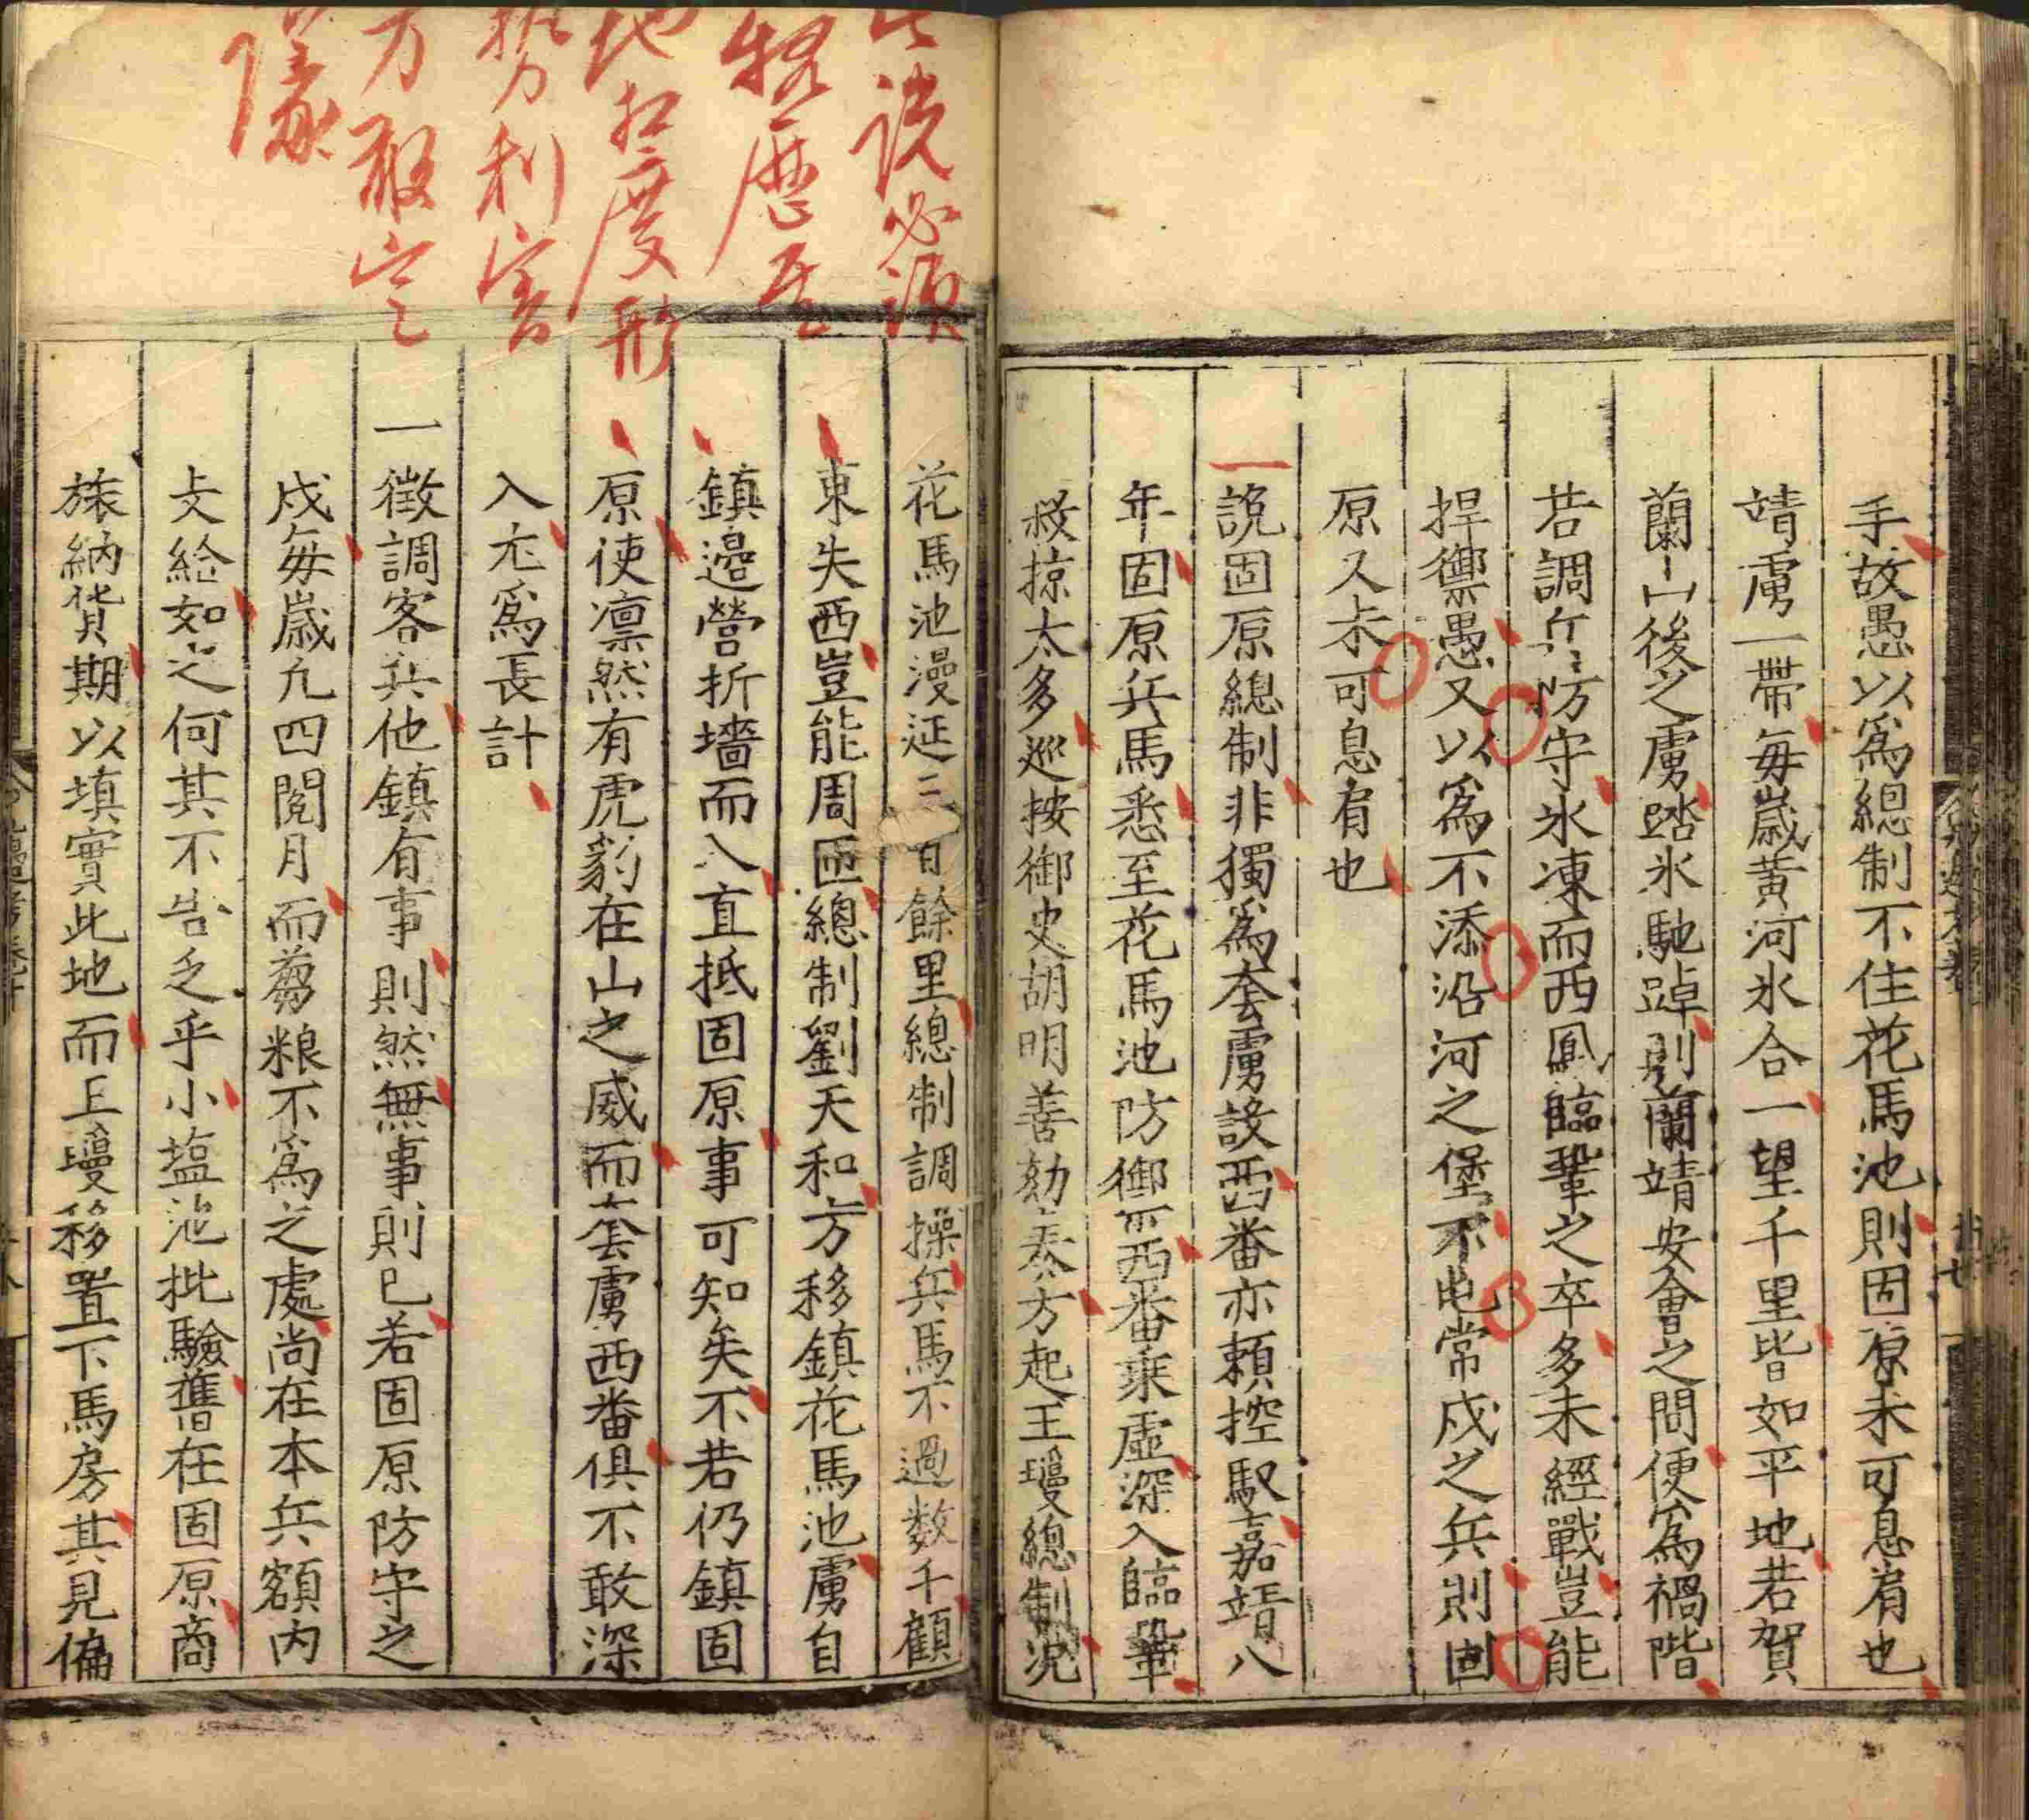 手故愚以爲總制不住花馬池則固原未可息肩也
靖虜一帶每嵗黃河氷合一望千里皆如平地若賀
蘭山後之虜踏氷馳踔則蘭靖安會之間便爲禍階
若調兵防守氷凍而西鳳臨鞏之卒多未經戰豈能
捍禦愚又以爲不添沿河之堡不屯常戍之兵則固
原又未可息肩也
說固原總制非獨爲套虜設西番亦賴控馭嘉靖八
年固原兵馬悉至花馬池防禦而西番乘虛深入臨鞏
殺掠太多巡按御史胡明善劾奏方起王瓊總制況
此説必須
轄歷吾
地相度形
勢利害
方敢定
議
花馬池漫延三百餘里總制調操兵馬不過数千顧
東失西豈能周匝總制劉天和方移鎮花馬池虜自
鎮邉營折墻而入直抵固原事可知矣不若仍鎮固
原使凛然有虎豹在山之威而套虜西番俱不敢深
入尤爲長計
一徵調客兵他鎮有事則然無事則已若固原防守之
戍每嵗九四閱月而蒭粮不爲之處尚在本兵額内
支給如之何其不告乏乎小塩池批驗舊在固原商
旅納貨期以填實此地而王瓊移置下馬房其見偏